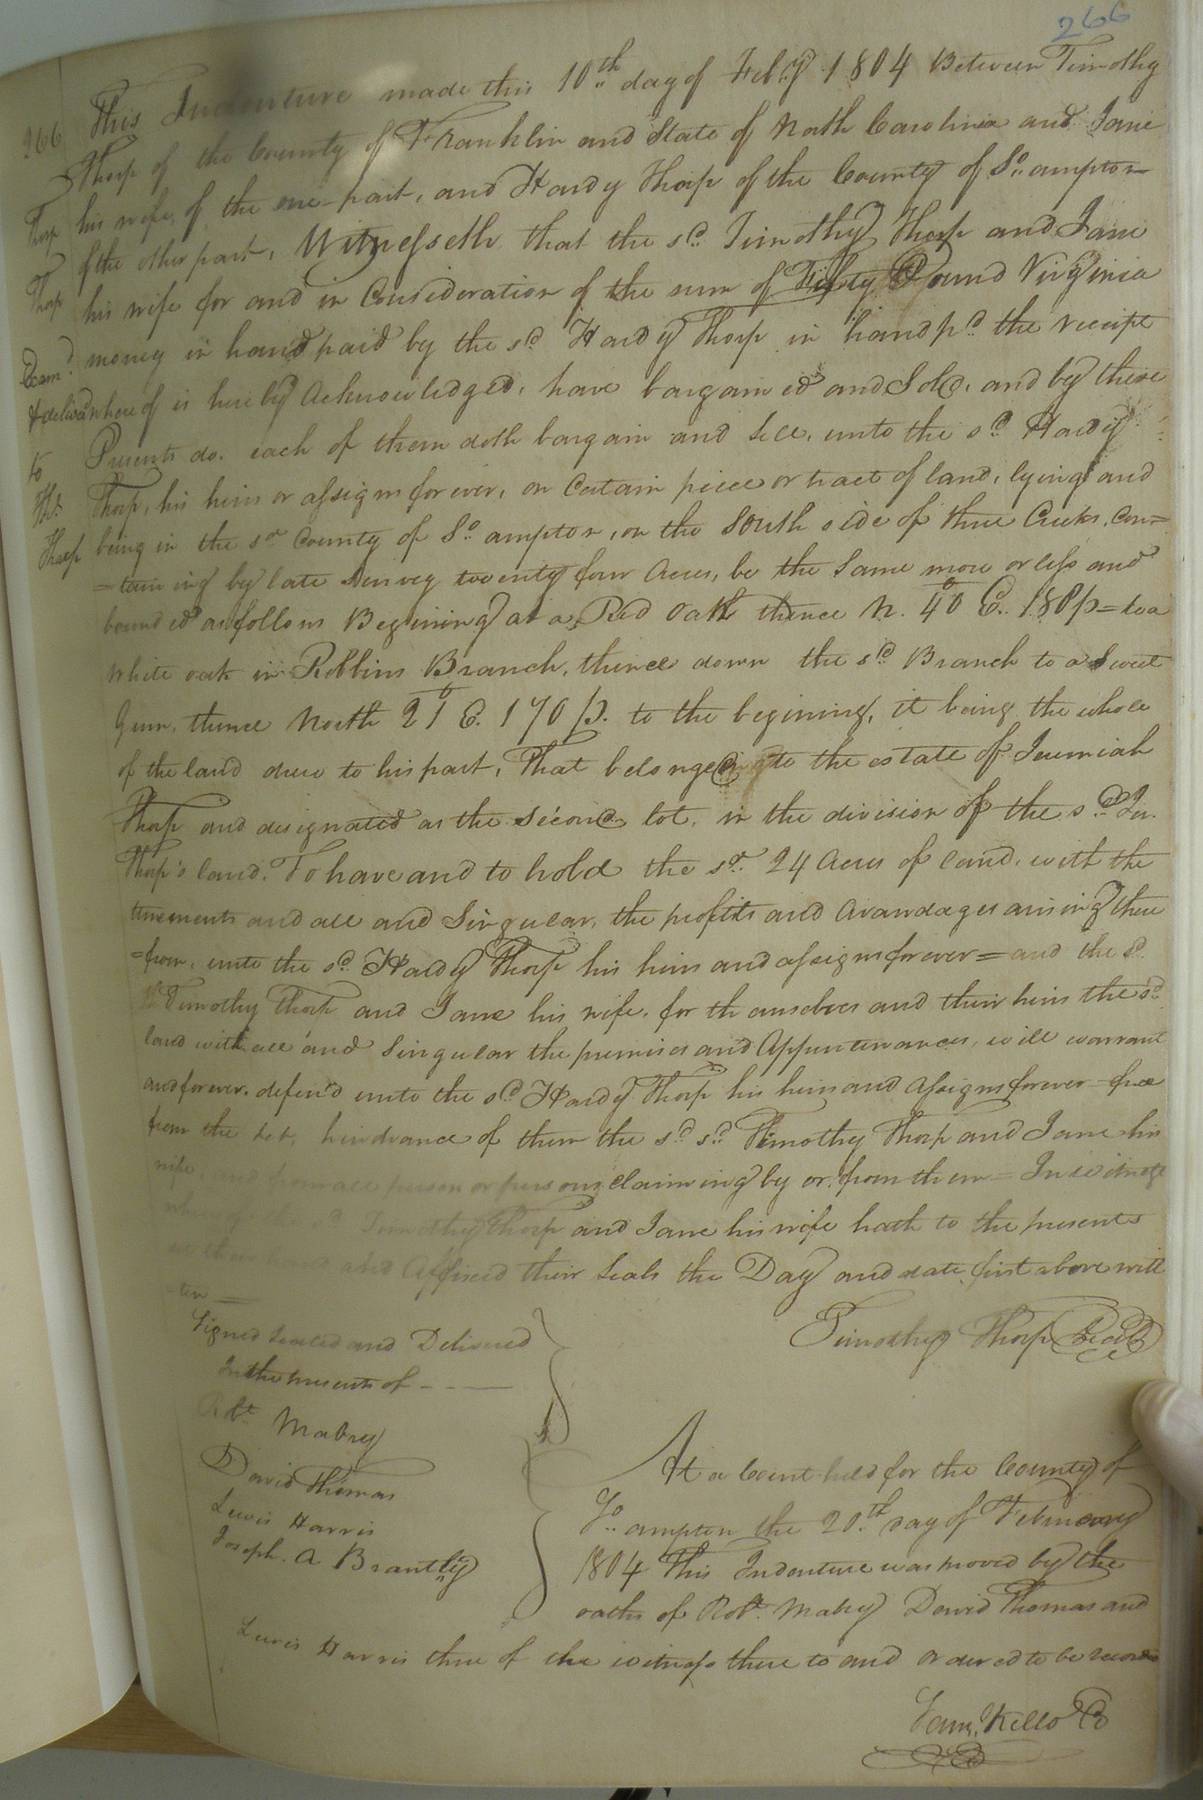 266
266
This Indenture made this 10th day of Feby 1804 Between Timothy
Thorp of the County of Franklin and State of North Carolina and Jane
his wife, of the one part, and Hardy Thorp of the County of So. ampton
of the other part, Witnesseth that the sd. Timothy Thorp and Jane
his wife for and in Consideration of the sum of Fifty Pound Virginia
money in hand paid by the sd Hardy Thorp in hand pd the receipt
whereof is hereby Acknowledged, have bargained and Sold, and by these
Presents do. each of them doth bargain and sell, unto the sd Hardy
Thorp, his heirs or assigns forever, on Certain piece or tract of land, lying and
being in the sd County of So. ampton, on the South side of three Creeks, Con=
=taining by late Survey twenty four Acres, be the Same more or less and
bounded as follows Begining at a Red Oak thence N. 40° E. 188 p= to a
white oak in Robbins Branch, thence down the sd Branch to a Sweet
Gum, thence North 21° E. 170 p. to the begining, it being the whole
of the land due to his part, That belonged to the estate of Jeremiah
Thorp and designated as the Second lot, in the division of the sd Jer.
Thorp's land. To have and to hold the sd. 24 Acres of land, with the
tenements and all and Singular, the profits and Avandages arising there
=from, unto the sd. Hardy Thorp his heirs and assigns forever= and the sd
Timothy Thorp and Jane his wife, for thamselves and their heirs the sd
land with all and Singular the premises and Appurtenances, will warrant
and forever. defend unto the sd Hardy Thorp his heirs and Assigns forever free
from the Let, hindrance of them the sd sd. Timothy Thorp and Jane his
wife, and from all person or persons claiming by or from them= In witness
whereof the sd Timothy Thorp and Jane his wife hath to the presents
set their hand and Affixed their Seals the Day and date first above writ
ten
Timothy Thorp Seal
Thorp
Thorp
Exam.d
& deliver'd
to
Thorp
Signed Sealed and Delivered
In the presents of
Robt Mabry
David Thomas
Lewis Harris
Joseph. A Brantly
At a Court held for the County of
So. ampton the 20th day of February
1804 This Indenture was proved by the
oaths of Robt. Mabry David Thomas and
Lewis Harris three of the witness there to and ordered to be recorded
Saml. Kello